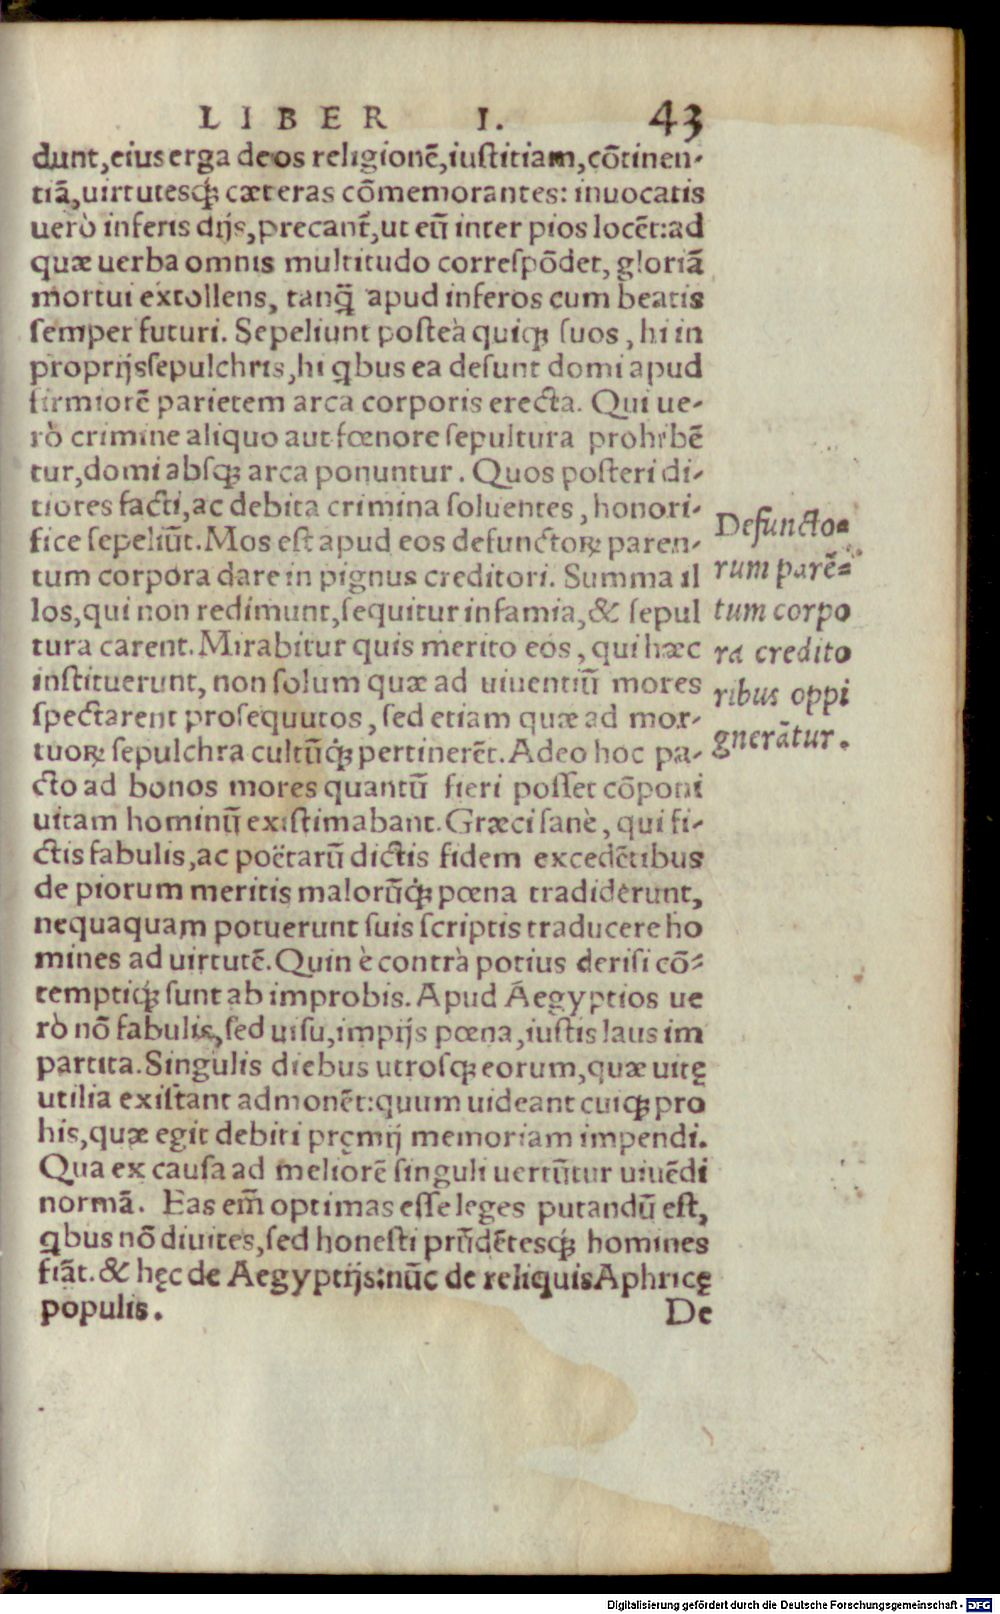 LIBER I. 43
dunt,eius erga deos religionē,iustitiam,cōtinen-
tiā,uirtutesq́ꝫ cæteras cōmemorantes: inuocatis
uerò inferis dijs,precant᷑,ut eū inter pios locēt:ad
quæ uerba omnis multitudo correspōdet, gloriā
mortui extollens, tanq̄ apud inferos cum beatis
semper futuri. Sepeliunt posteà quiqꝫ suos, hi in
proprijs sepulchris,hi qbus ea desunt domi apud
firmiorē parietem arca corporis erecta. Qui ue-
rò crimine aliquo aut fœnore sepultura prohibē
tur,domi absqꝫ arca ponuntur. Quos posteri di-
tiores facti,ac debita crimina soluentes, honori-
fice sepeliūt. Mos est apud eos defunctoꝝ paren-
tum corpora dare in pignus creditori. Summa il
los,qui non redimunt,sequitur infamia,& sepul
tura carent. Mirabitur quis merito eos, qui hæc
instituerunt, non solum quæ ad uiuentiū mores
spectarent prosequutos, sed etiam quæ ad mor-
tuoꝝ sepulchra cultūq́ꝫ pertinerēt. Adeo hoc pa-
cto ad bonos mores quantū fieri posset cōponi
uitam hominū existimabant. Græci sanè, qui fi-
ctis fabulis,ac poëtarū dictis fidem excedētibus
de piorum meritis malorūq́ꝫ pœna tradiderunt,
nequaquam potuerunt suis scriptis traducere ho
mines ad uirtutē. Quin è contrà potius derisi cō-
temptiq́ꝫ sunt ab improbis. Apud Aegyptios ue
rò nō fabulis,sed uisu,impijs pœna,iustis laus im
partita. Singulis diebus utrosqꝫ eorum,quæ uitę
utilia existant admonēt:quum uideant cuiqꝫ pro
his,quæ egit debiti pręmij memoriam impendi.
Qua ex causa ad meliorē singuli uertūtur uiuēdi
normā. Eas em̄ optimas esse leges putandū est,
qbus nō diuites,sed honesti prūdētesq́ꝫ homines
fiāt. & hęc de Aegyptijs:nūc de reliquis Aphricę
populis. De
Defuncto-
rum parē-
tum corpo
ra credito
ribus oppi
gnerātur.
Digitalisierung gefördert durch die Deutsche Forschungsgemeinschaft - DFG